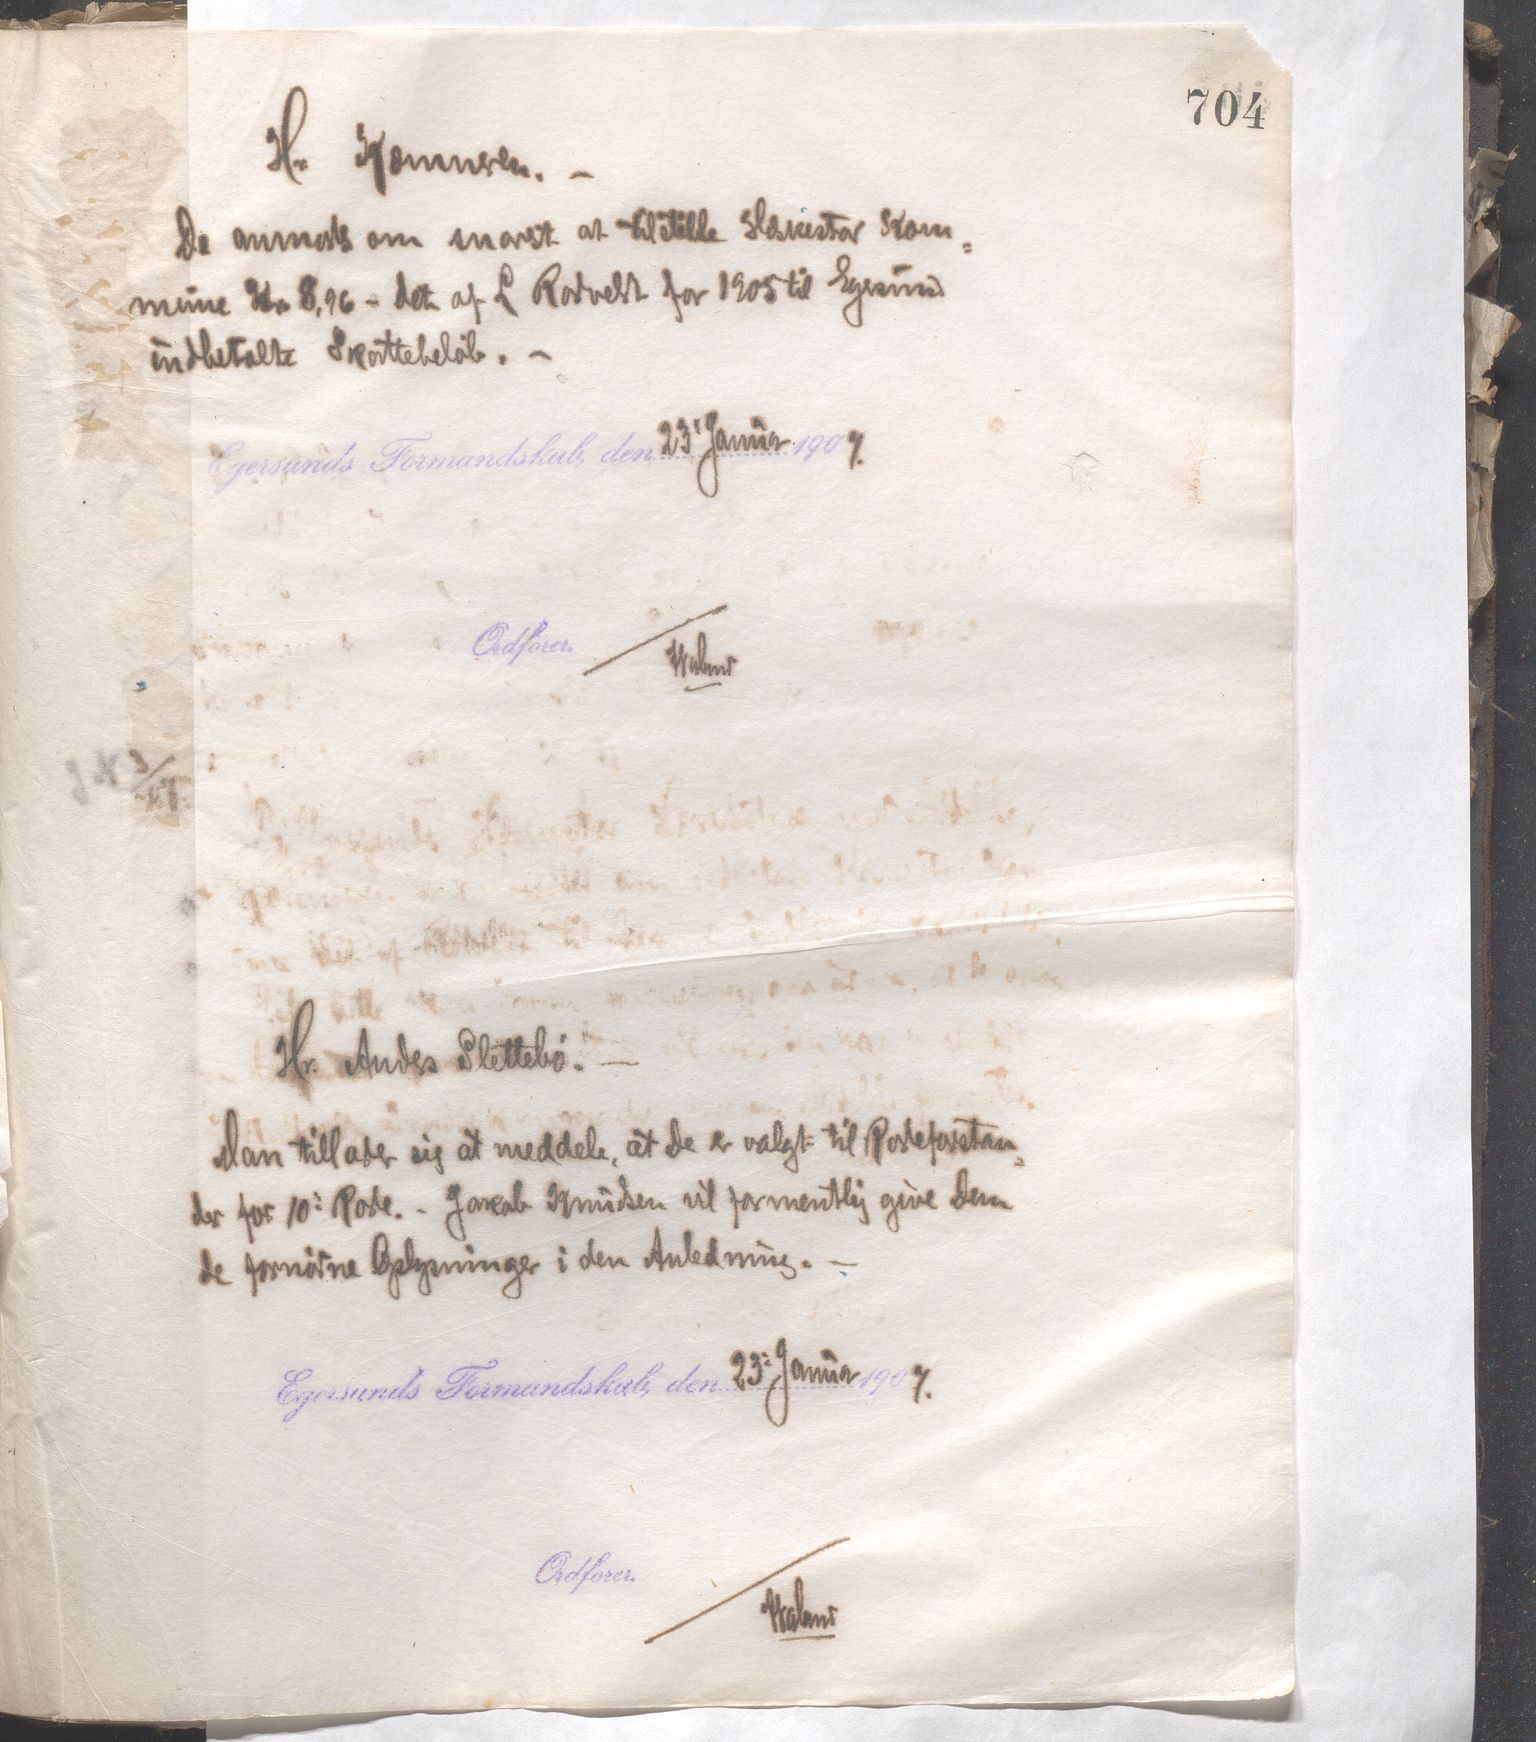 704
Hr. Kæmneren. -
De anmodes om snarest at tilstille Haskestar Kom=
mune Kr 8,96 - det af L Rodvelt for 1905 til Egersund
indbetalte Skattebeløb. -
Egersunds Formandskab, den 23: Januar 1907.
Ordfører.
Hr. Anders Slettebø. -
Man tillader sig at meddele, at De er valgt til Rodeforstan=
der for 10: Rode. - Jakob Knudsen vil formentlig give Dem
de fornødne Oplysninger i den Anledning. -
Egersunds Formandskab, den 23: Januar 1907.
Ordfører.